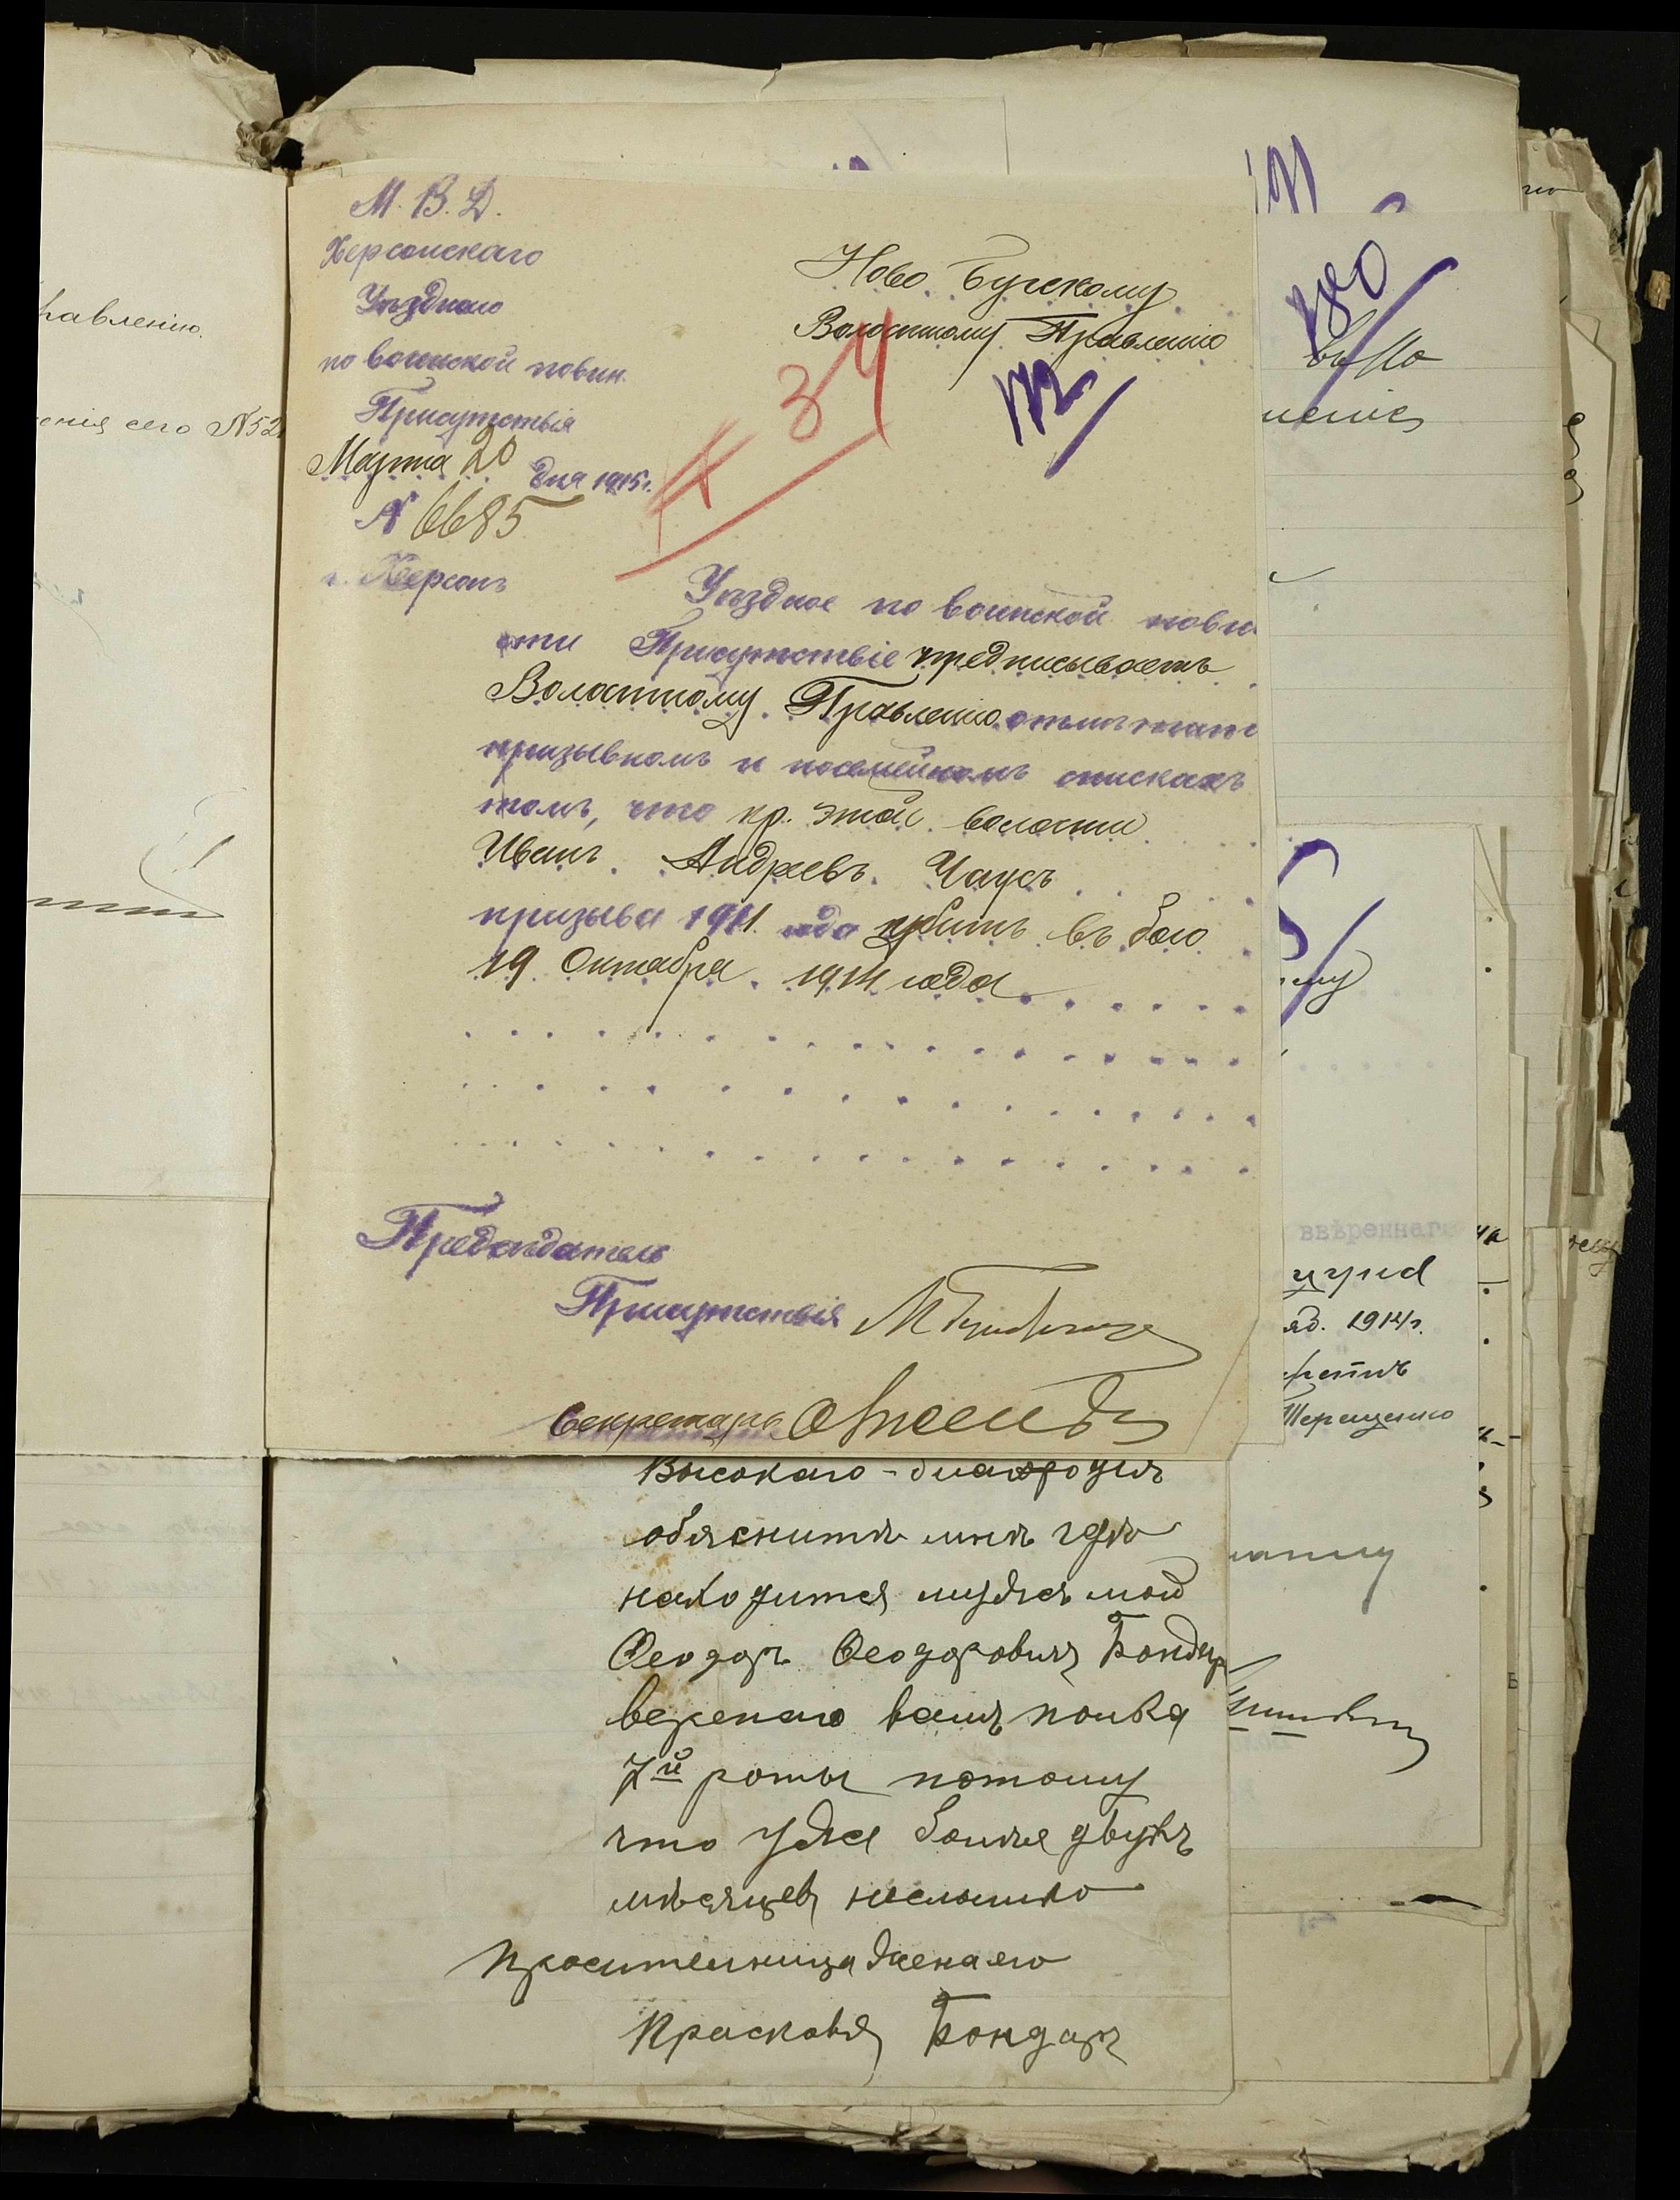 равленію.
енія сего №52
М. В. Д.
Херсонскаго
Уѣзднаго
по воинской повин.
Присутствія
Марта 20 дня 1915 г.
№ 6685
г. Херсонъ
Ново Бугскому
Волостному Правленію
34
172
Уѣздное по воинской повин
сти Присутствіе предписываетъ
Волостному Правленію отмѣтить
призывномъ и посемейномъ спискахъ
томъ, что кр. этой волости
Иванъ Андреевъ Чаусъ
призыва 1911 года убитъ въ бою
19 Октября 1914 года
Предсѣдатель
Присутствія
Секретарь
Высокаго-благородія
обяснить мнѣ гдѣ
находится мужъ мой
Феодоръ Феодоровичъ Бондар
веренаго вамъ полка
7й роты потому
что уже болѣе двухъ
мѣсяцевъ неслышно
Просительница жена его
Прасковья Бондарь
180
ввѣреннаго
яд. 1914 г.
Терещенко